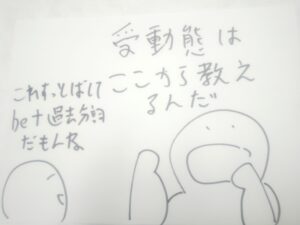 受動態は
ここから教え
るんだ
これすっとばして
be+過去分詞
だもんな